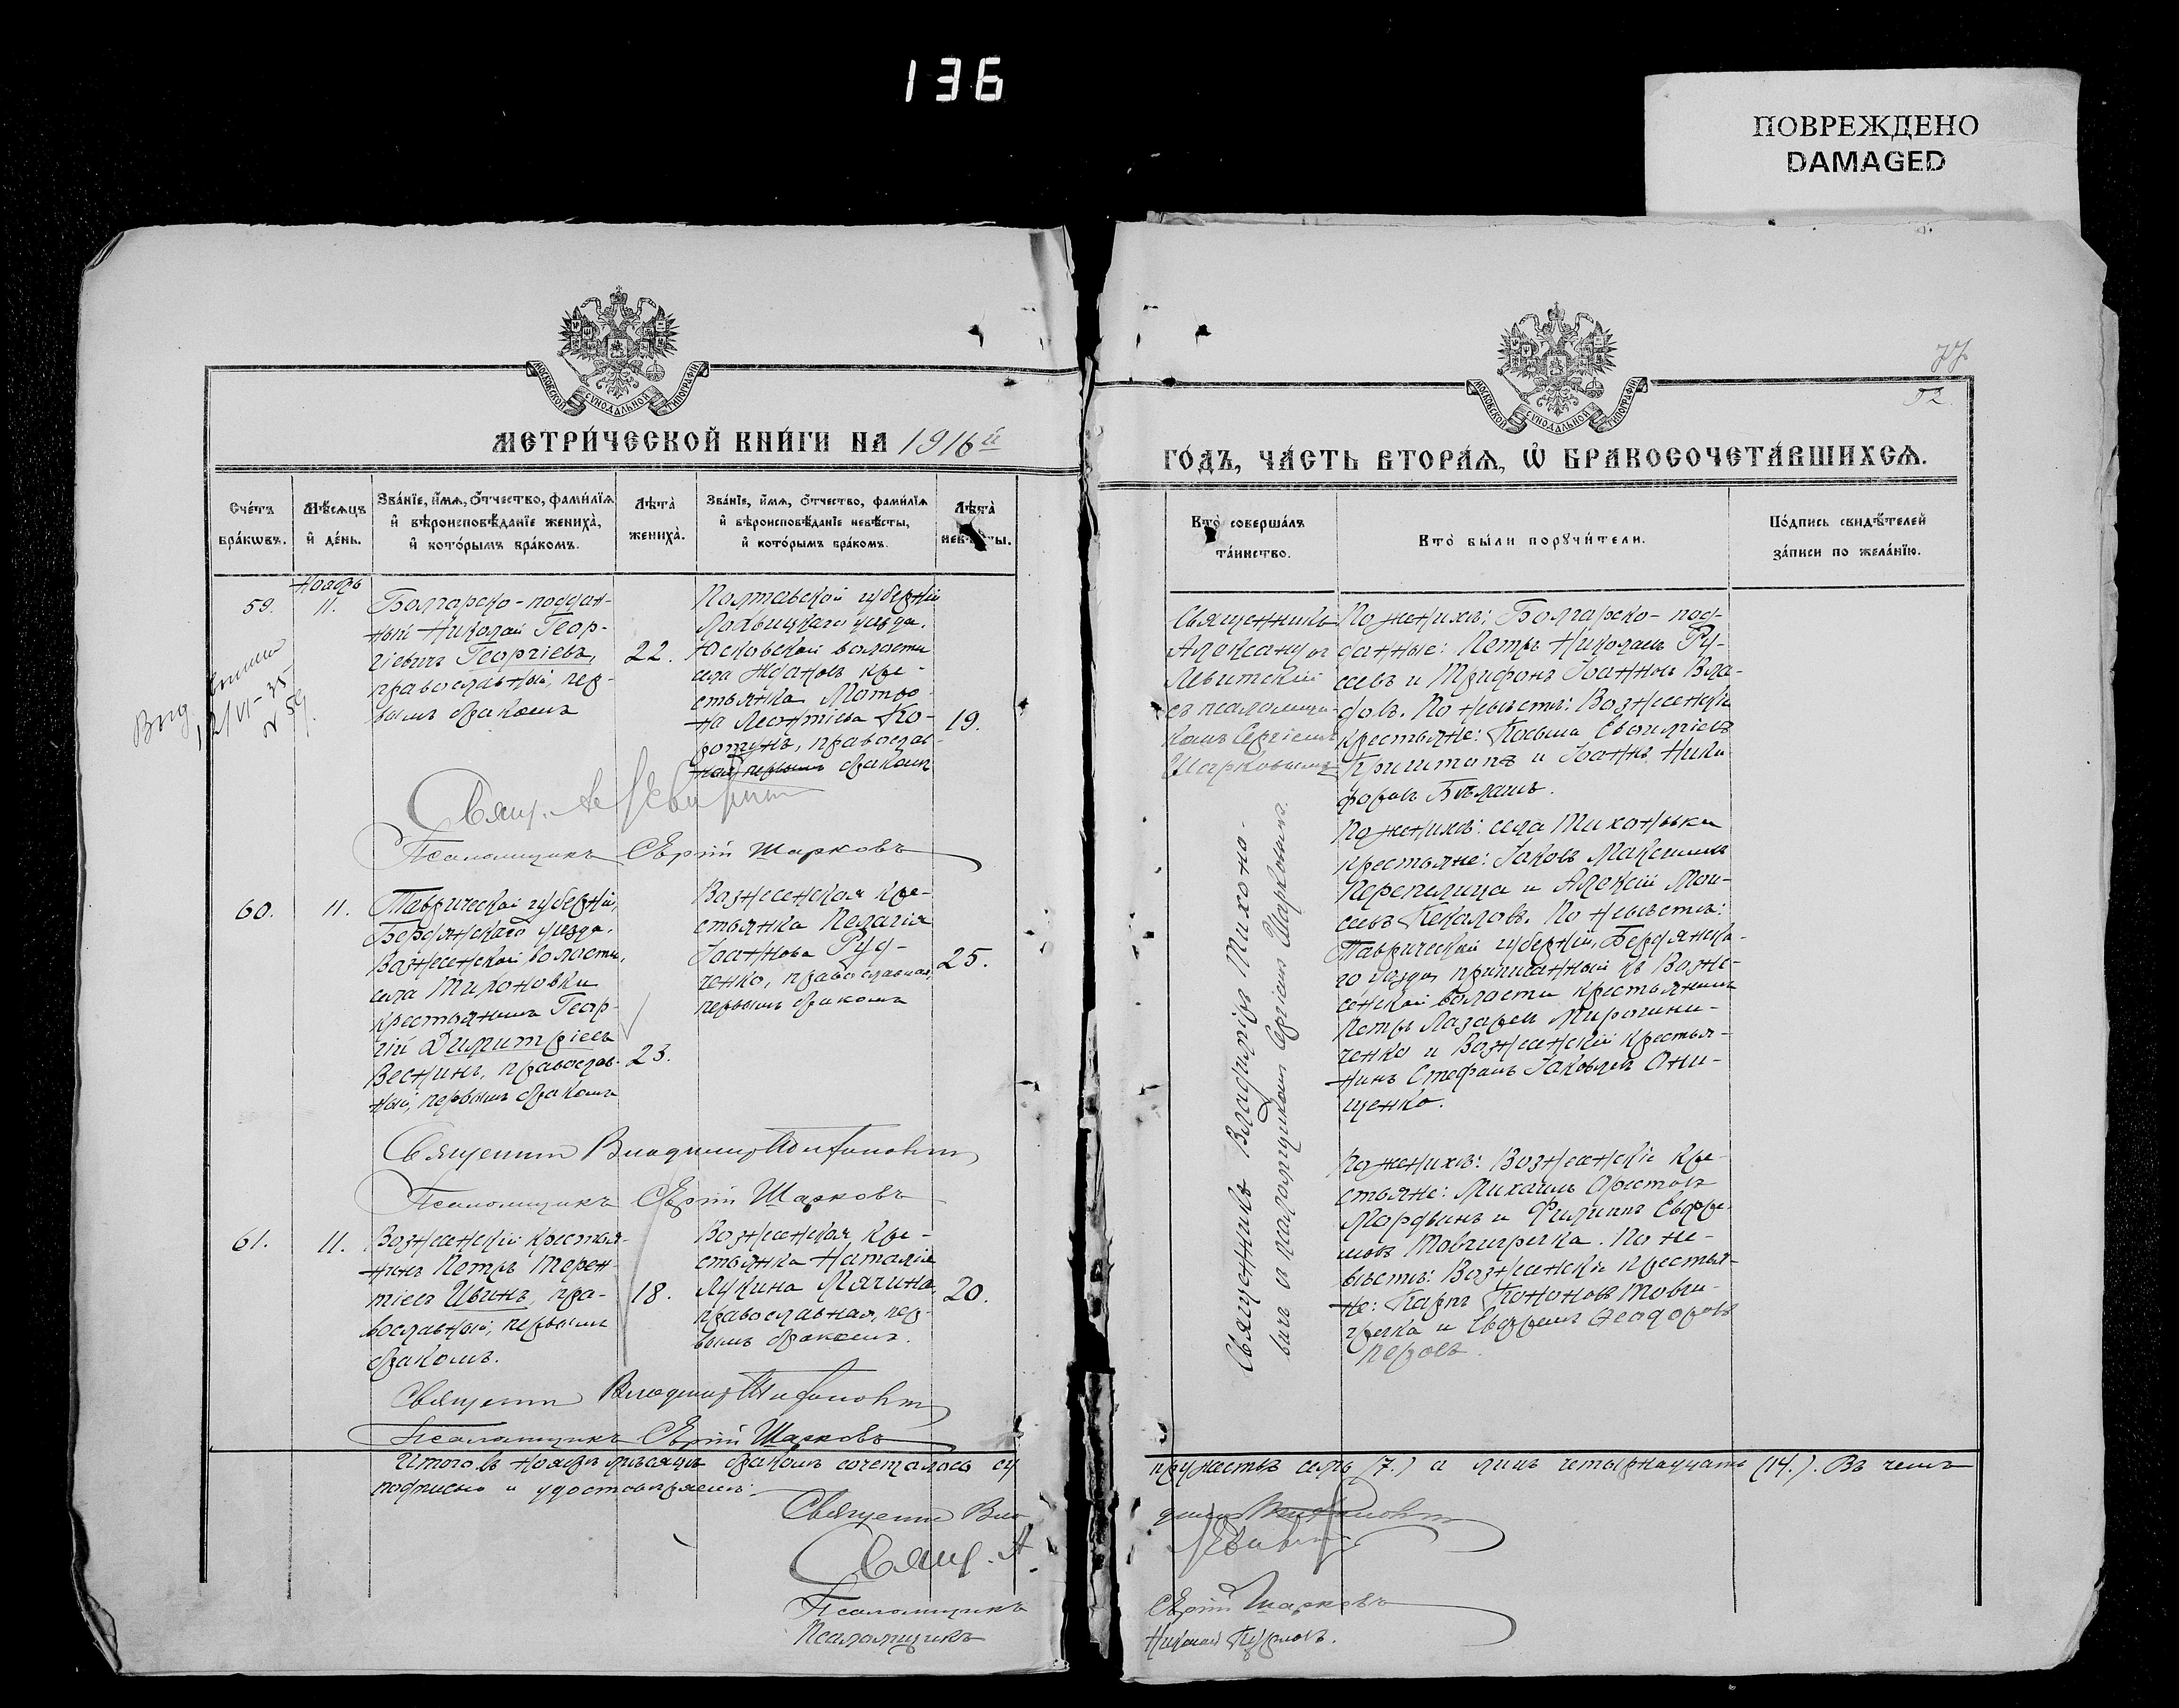 136
ПОВРЕЖДЕНО
DAMAGED
МОСКОВСКОЙ СУНОДАЛЬНОЙ ТИПОГРАФІИ
МЕТРИ́ЧЕСКОЙ КНИ́ГИ НА 1916й
Сче́тъ бра́кѡвъ.
Мѣ́сѧцъ и҆ де́нь.
Зва́нїе, и҆́мѧ, ѻ҆́тчество, фами́лїѧ
и҆ вѣроисповѣ́данїе жениха̀,
и҆ кото́рымъ бра́комъ.
Лѣта̀ жениха̀.
Зва́нїе, и҆́мѧ, ѻ҆́тчество, фами́лїѧ
и҆ вѣроисповѣ́данїе невѣ́сты,
и҆ кото́рымъ бра́комъ.
Лѣта̀ невѣ́сты.
59.
Ноябрь
11.
Болгарско-поддан-
ный Николай Геор-
гіевичъ Георгіевъ,
православный, пер-
вымъ бракомъ
22.
Полтавской губерніи
Лохвицкаго уезда,
Юсковской волости
села Жданов кре-
стьянка Мотро-
на Леонтіева Ко-
ротунъ, православ-
ная, первымъ бракомъ
19.
Свящ. Ал Левитскій
Псаломщикъ Сергій Шарковъ
60.
11.
Таврической губерніи,
Бердянскаго уезда,
Вознесенской волости,
села Тихоновки
крестьянинъ Геор-
гій Димитріевъ
Веснинъ, православ-
ный, первымъ бракомъ
23.
Вознесенская кре-
стьянка Пелагія
Іоаннова Руд-
ченко, православная,
первымъ бракомъ
25.
Священникъ Владимиръ Тихоновичъ
Псаломщикъ Сергій Шарковъ
61.
11.
Вознесенскій крестья-
нинъ Петръ Терен-
тіевъ Ивинъ, пра-
вославный, первымъ
бракомъ.
18.
Вознесенская кре-
стьянка Наталія
Лукина Лягина,
православная, пер-
вымъ бракомъ.
20.
Священникъ Владимиръ Тихоновичъ
Псаломщикъ Сергій Шарковъ
Итого въ Ноябрѣ мѣсяцѣ бракомъ сочеталось су
подписью и удостовѣряемъ:
Священникъ Вла
Свящ. А
Псаломщикъ
Псаломщикъ
МОСКОВСКОЙ СУНОДАЛЬНОЙ ТИПОГРАФІИ
77
52
ГО́ДЪ, ЧА́СТЬ ВТОРА́Ѧ, Ѡ҆ БРАКОСОЧЕТА́ВШИХСѦ.
Кто̀ соверша́лъ
та́инство.
Кто̀ бы́ли порꙋчи́тели.
По́дпись свидѣ́телей
за́писи по жела́нїю.
Священникъ
Александръ
Левитскій
съ псаломщи-
комъ Сергіемъ
Шарковымъ
По женихѣ: Болгарско-под-
данные: Петръ Николаевъ Ру-
севъ и Трифонъ Іоанновъ Вла-
довъ. По невѣстѣ: Вознесенскіе
крестьяне: Косьма Евѳиміевъ
и Іоаннъ Ники-
форовъ Бѣлашъ.
Священникъ Владимиръ Тихоно-
вичъ и псаломщикомъ Сергіемъ Шарковымъ.
По женихѣ: села Тихоновки
крестьяне: Іаковъ Максимовъ
Перепелица и Алексій Мои-
сеевъ Кекаловъ. По невѣстѣ:
Таврической губерніи, Бердянска-
го уезда, приписанный къ Возне-
сенской волости крестьянинъ
Петръ Лазаревъ Мирошни-
ченко и Вознесенскій крестья-
нинъ Стефанъ Іаковлевъ Они-
щенко.
По женихѣ: Вознесенскіе кре-
стьяне: Михаилъ Орестовъ
Мордвинъ и Филиппъ Евфре-
мовъ Товчигречка. По не-
вѣстѣ: Вознесенскіе крестья-
не: Карпъ Кононовъ Товчи-
гречка и Евфремъ Ѳеодоровъ
пружествъ семь (7.) а лицъ четырнадцать (14.). Въ чемъ
димиръ Тихоновичъ
Левитскій
Сергій Шарковъ
Николай